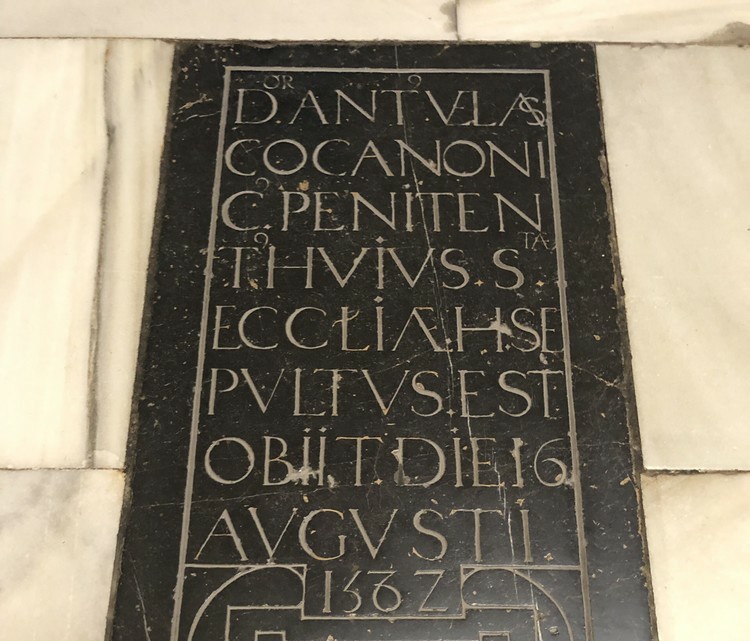 D.OR ANT.9 VELAS
CO CANONI
C.9 PENITEN
T.9 HVIVS. S.TA
ECCLIÆ. H SE
PVLTVS. EST
OBIIT DIE 16
AVGVSTI
1562